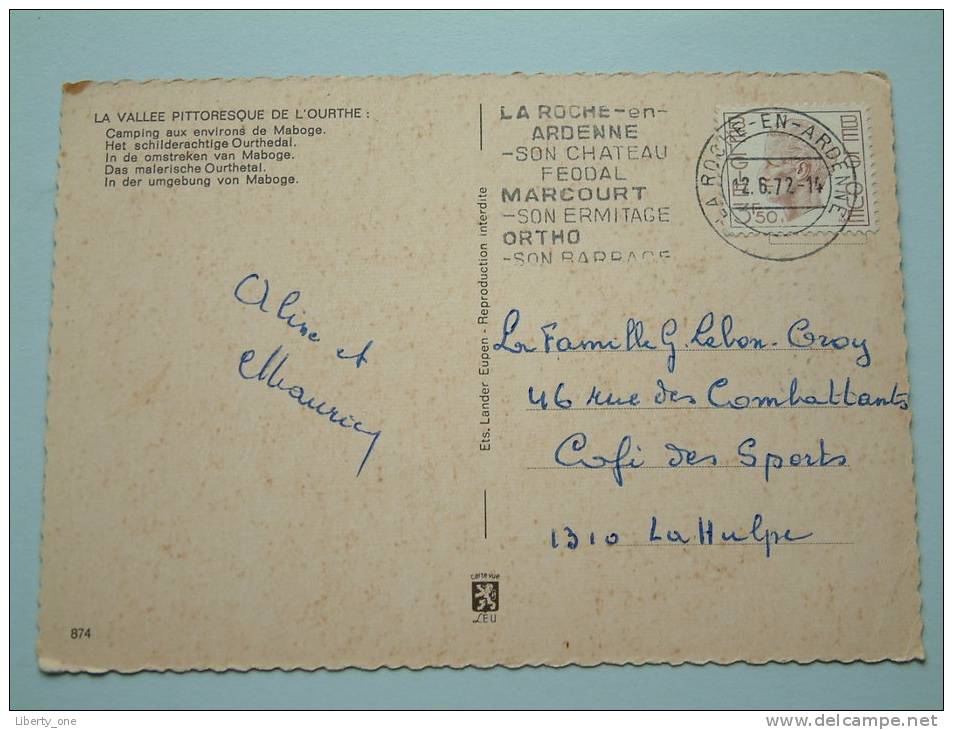 LA VALLEE PITTORESQUE DE L'OURTHE :
Camping aux environs de Maboge.
Het schilderachtige Ourthedal.
In de omstreken van Maboge.
Das malerische Ourthetal.
In der umgebung von Maboge.
Aline et
Maurice
874
Ets. Lander Eupen - Reproduction interdite
carte vue
LEU
LA ROCHE-en-
ARDENNE
-SON CHATEAU
FEODAL
MARCOURT
-SON ERMITAGE
ORTHO
-SON BARRAGE
LA ROCHE-EN-ARDENNE
12.6.72-14
BELGIQUE
BELGIE
3F50
La Famille G. Lebon-Croy
46 rue des Combattants
Café des Sports
1310 La Hulpe
Liberty_one
www.delcampe.net